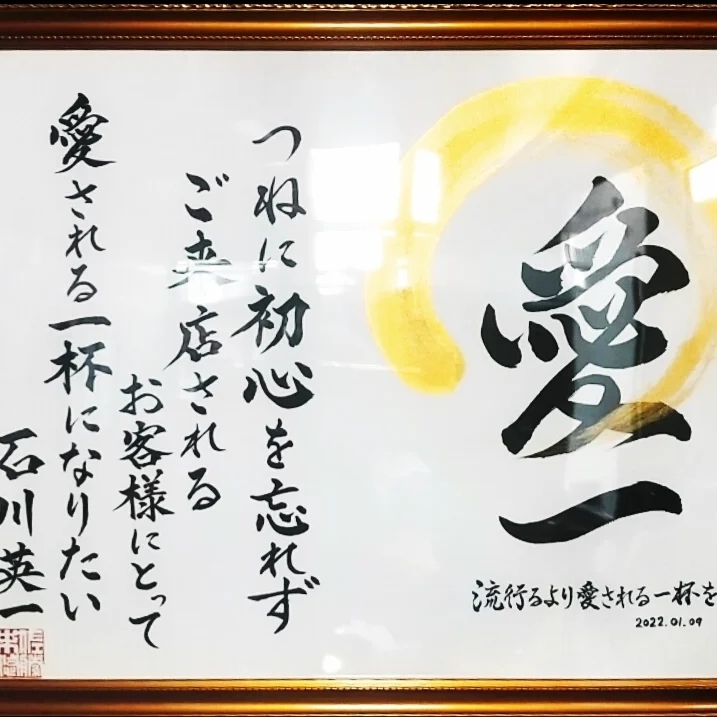 愛一
流行るより愛される一杯を
2022.01.09
つねに初心を忘れず
ご来店される
お客様にとって
愛される一杯になりたい
石川英一